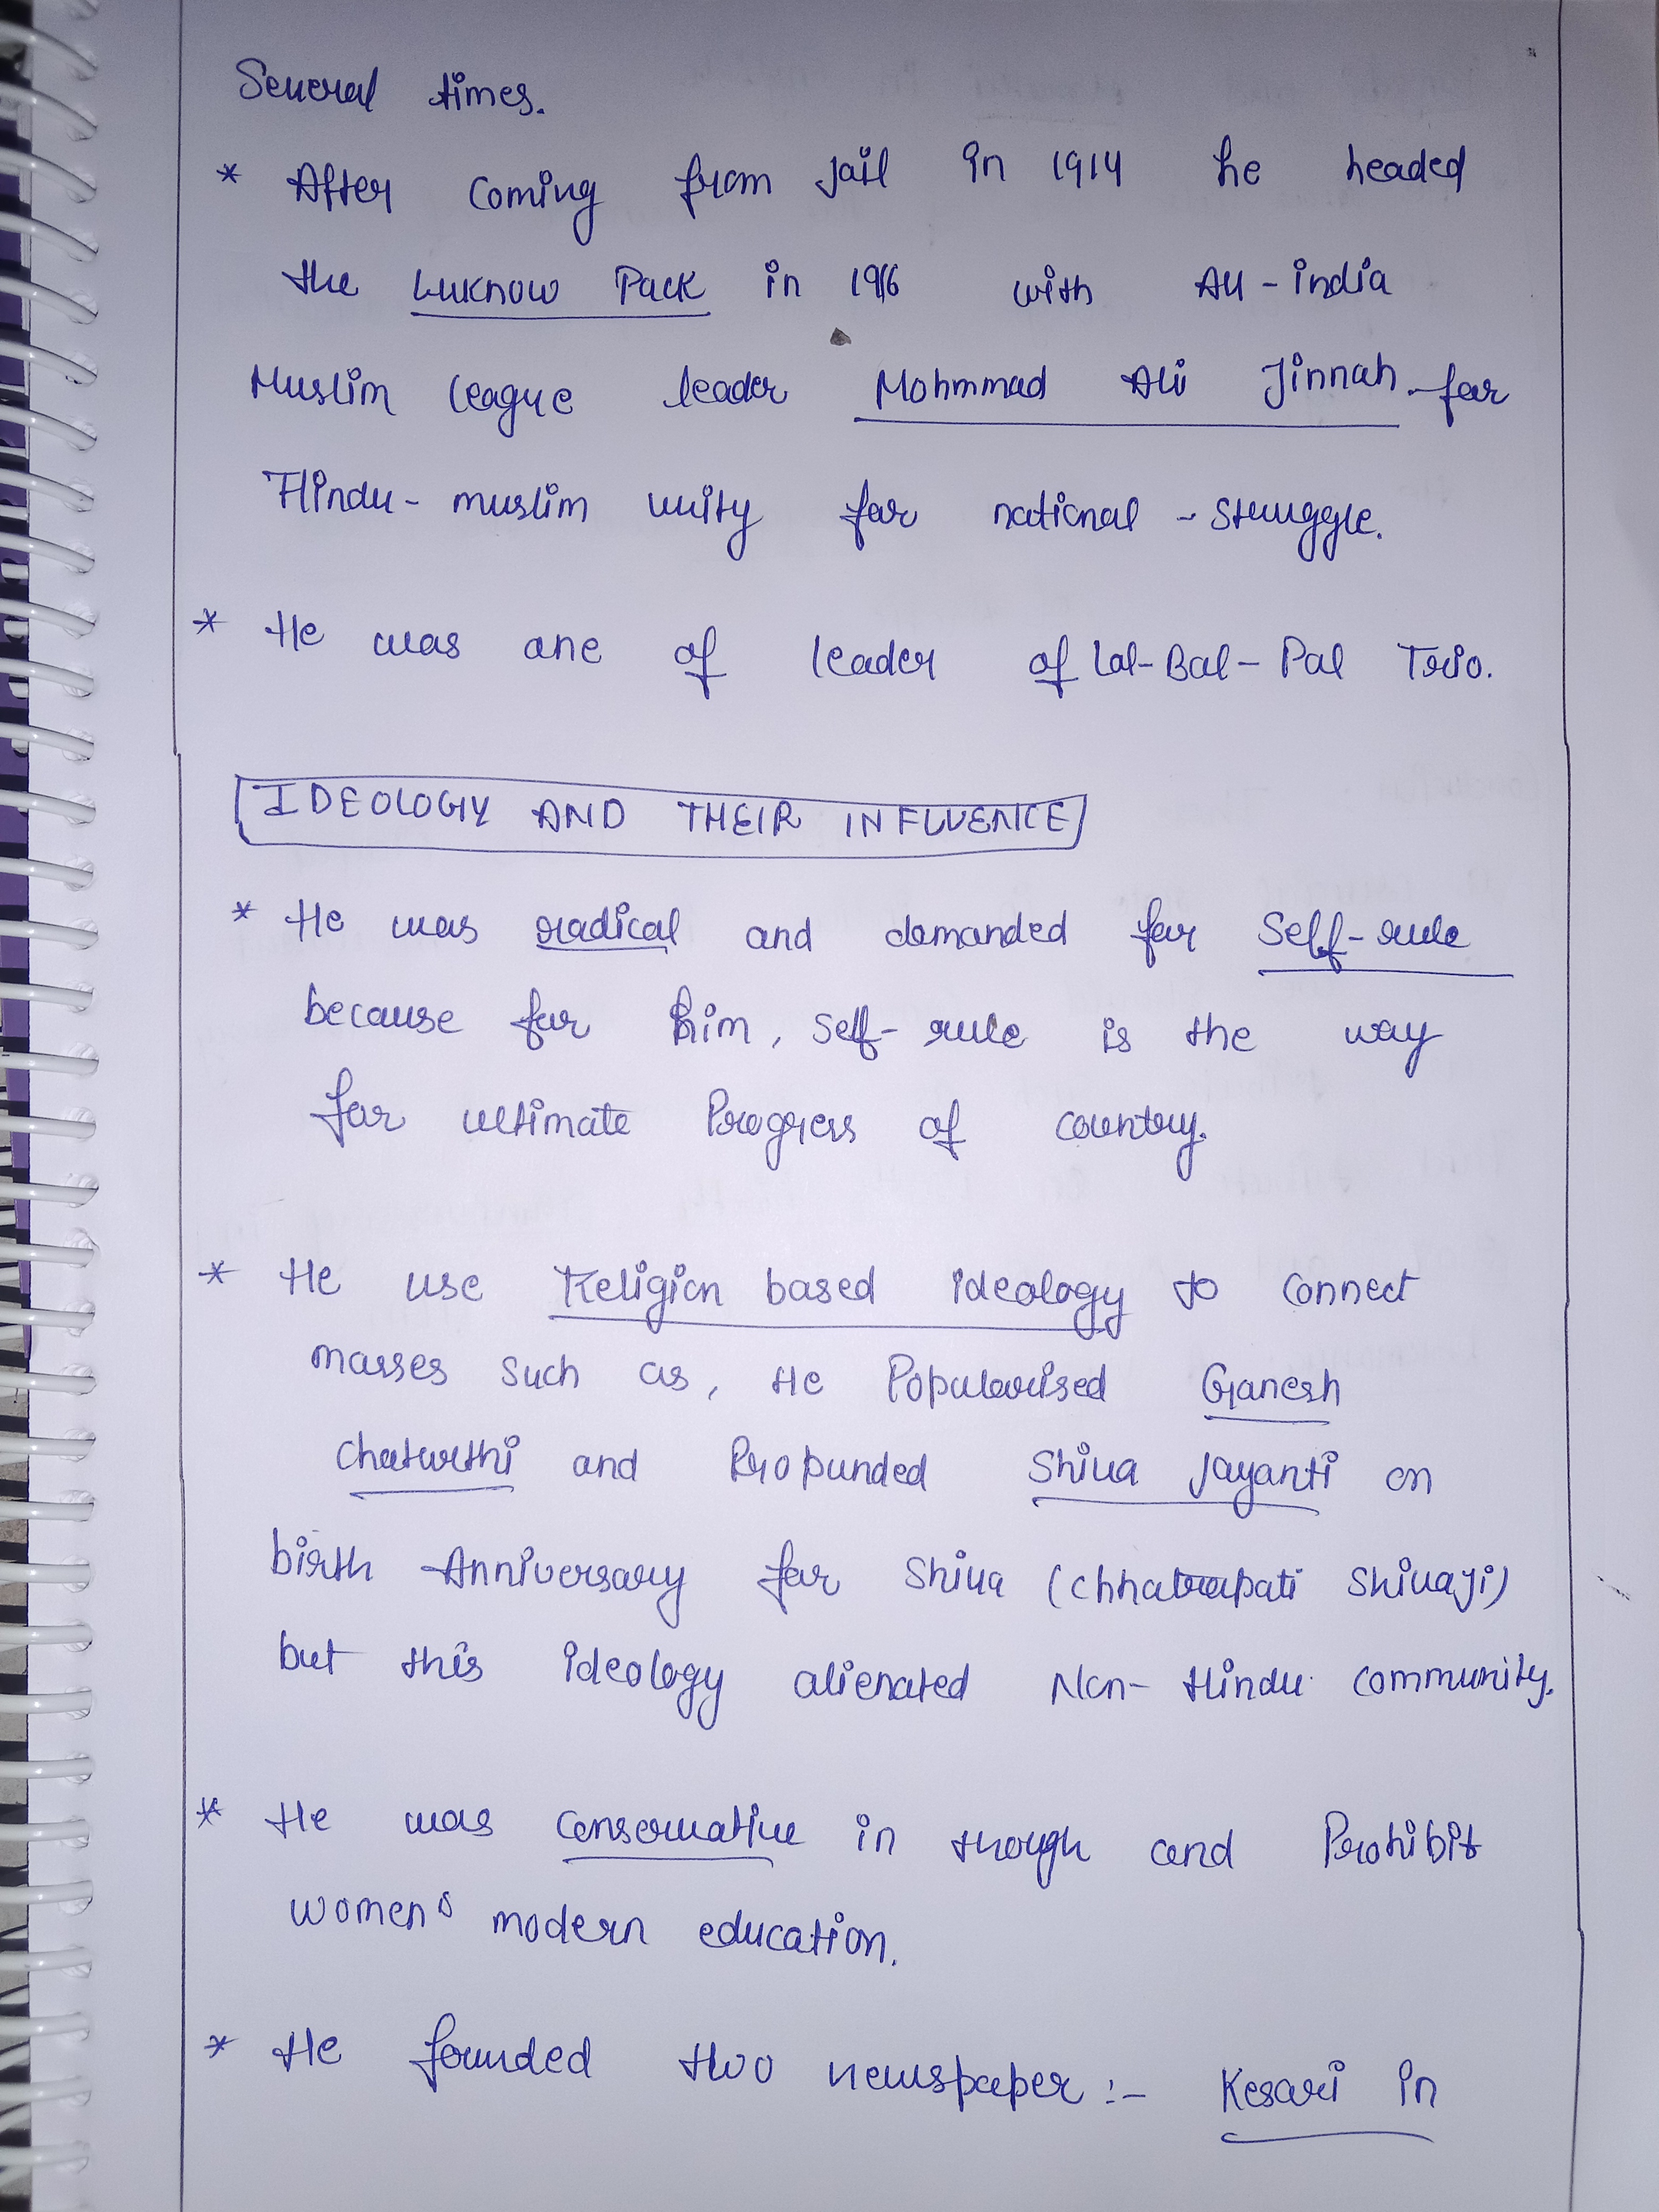 Several times.
* After coming from jail in 1914 he headed
the Luknow Pack in 1916 with All-india
Muslim league leader Mohmmad Ali Jinnah for
Hindu-muslim unity for national-struggle.
* He was one of leader of Lal-Bal-Pal Trio.
IDEOLOGY AND THEIR INFLUENCE
* He was radical and demanded for self-rule
because for him, self-rule is the way
for ultimate Progress of country.
* He use Religion based ideology to connect
masses such as, He Popularised Ganesh
chaturthi and Propunded Shiva Jayanti on
birth Anniversary for Shiva (Chhatrapati Shivaji)
but this ideology alienated Non-Hindu community.
* He was conservative in though and Prohibit
women's modern education.
* He founded two newspaper :- Kesari in